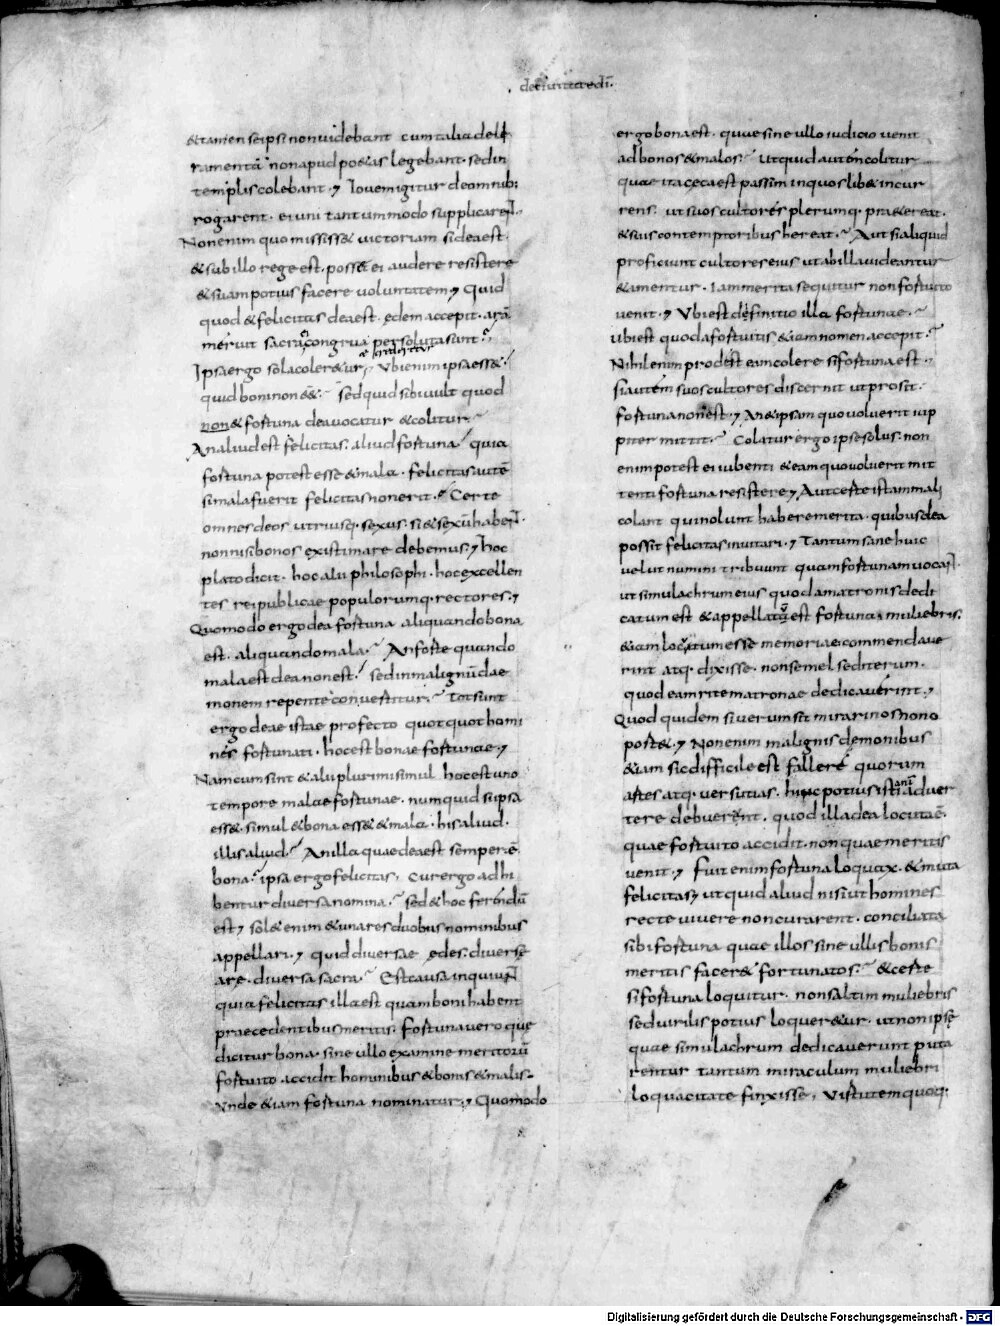 de ciuitate di.
& tamen se ipsi non uidebant cum talia deli
ramenta non apud poetas legebant. sed in
templis colebant. Iouem igitur de omnib;
rogarent. ei uni tantummodo supplicarent.
Non enim quo misiss& uictoriam si dea est.
& sub illo rege est. poss& ei audere resistere
& suam potius facere uoluntatem. Quid
quod & felicitas dea est. edem accepit. aram
meruit sacra congrua persoluta sunt.
Ipsa ergo sola coleretur. Ubi enim ipsa ess&.
quid boni non ess&. Sed quid sibi uult quod
& fortuna dea uocatur & colitur.
An aliud est felicitas. aliud fortuna. quia
fortuna potest esse & mala. felicitas autē
si mala fuerit felicitas non erit. Certe
omnes deos utriusq. sexus. si & sexū habent.
non nisi bonos existimare debemus. hoc
plato dicit. hoc alii philosophi. hoc excellen
tes reipublicae populorumq. rectores.
Quomodo ergo dea fortuna aliquando bona
est. aliquando mala. An forte quando
mala est dea non est. sed in malignū dae
monem repente conuertitur. Tot sunt
ergo deae istae profecto quotquot homi
nes fortunati. hoc est bonae fortunae.
Nam cum sint & alii plurimi simul hoc est uno
tempore malae fortunae. numquid si ipsa
ess&. simul & bona ess& & mala. his aliud.
illis aliud. An illa quae dea est semper ē
bona. ipsa ergo felicitas. Cur ergo adhi
bentur diuersa nomina. Sed & hoc ferendū
est. sol& enim & una res duobus nominibus
appellari. quid diuersae edes. diuersę
arę. diuersa sacra. Est causa inquiunt
quia felicitas illa est quam boni habent
praecedentibus meritis. fortuna uero que
dicitur bona. sine ullo examine meritorū
fortuito accidit hominibus & bonis & malis.
Unde & iam fortuna nominatur. Quomodo
ergo bona est. quae sine ullo iudicio uenit
ad bonos & malos. Ut quid autem colitur
quae ita ceca est passim in quoslib& incur
rens. ut suos cultores plerumq. praetereat.
& suis contemptoribus hereat. Aut si aliquid
proficiunt cultores eius ut ab illa uideantur
& amentur. Iam merita sequitur non fortuito
uenit. Ubi est definitio illa fortunae.
ubi est quod a fortuitis & iam nomen accepit.
Nihil enim prodest eam colere si fortuna est.
si autem suos cultores discernit ut prosit.
fortuna non est. An & ipsam quo uoluerit iup
piter mittit. Colatur ergo ipse solus. non
enim potest ei iubenti & eam quo uoluerit mit
tenti fortuna resistere. Aut certe istam mali
colant qui nolunt habere merita. quibus dea
possit felicitas inuitari. Tantum sane huic
uelut numini tribuunt quam fortunam uocant.
ut simulachrum eius quod a matronis dedi
catum est & appellata est fortuna muliebris.
& iam locutum esse memoriae commendaue
rint atq. dixisse. non semel sed iterum.
quod eam rite matronae dedicauerint.
Quod quidem si uerum sit mirari nos non o
port&. Non enim malignis demonibus
& iam sic difficile est fallere quorum
artes atq. uersutias. hinc potius isti aduer
tere debuerunt. quod illa dea locuta ē.
quae fortuito accidit. non quae meritis
uenit. Fuit enim fortuna loquax. & muta
felicitas. ut quid aliud nisi ut homines
recte uiuere non curarent. conciliata
sibi fortuna quae illos sine ullis bonis
meritis facer& fortunatos. & certe
si fortuna loquitur. non saltim muliebris
sed uirilis potius loqueretur. ut non ipsę
quae simulachrum dedicauerunt puta
rentur tantum miraculum muliebri
loquacitate finxisse. Uirtutem quoq.
Digitalisierung gefördert durch die Deutsche Forschungsgemeinschaft - DFG